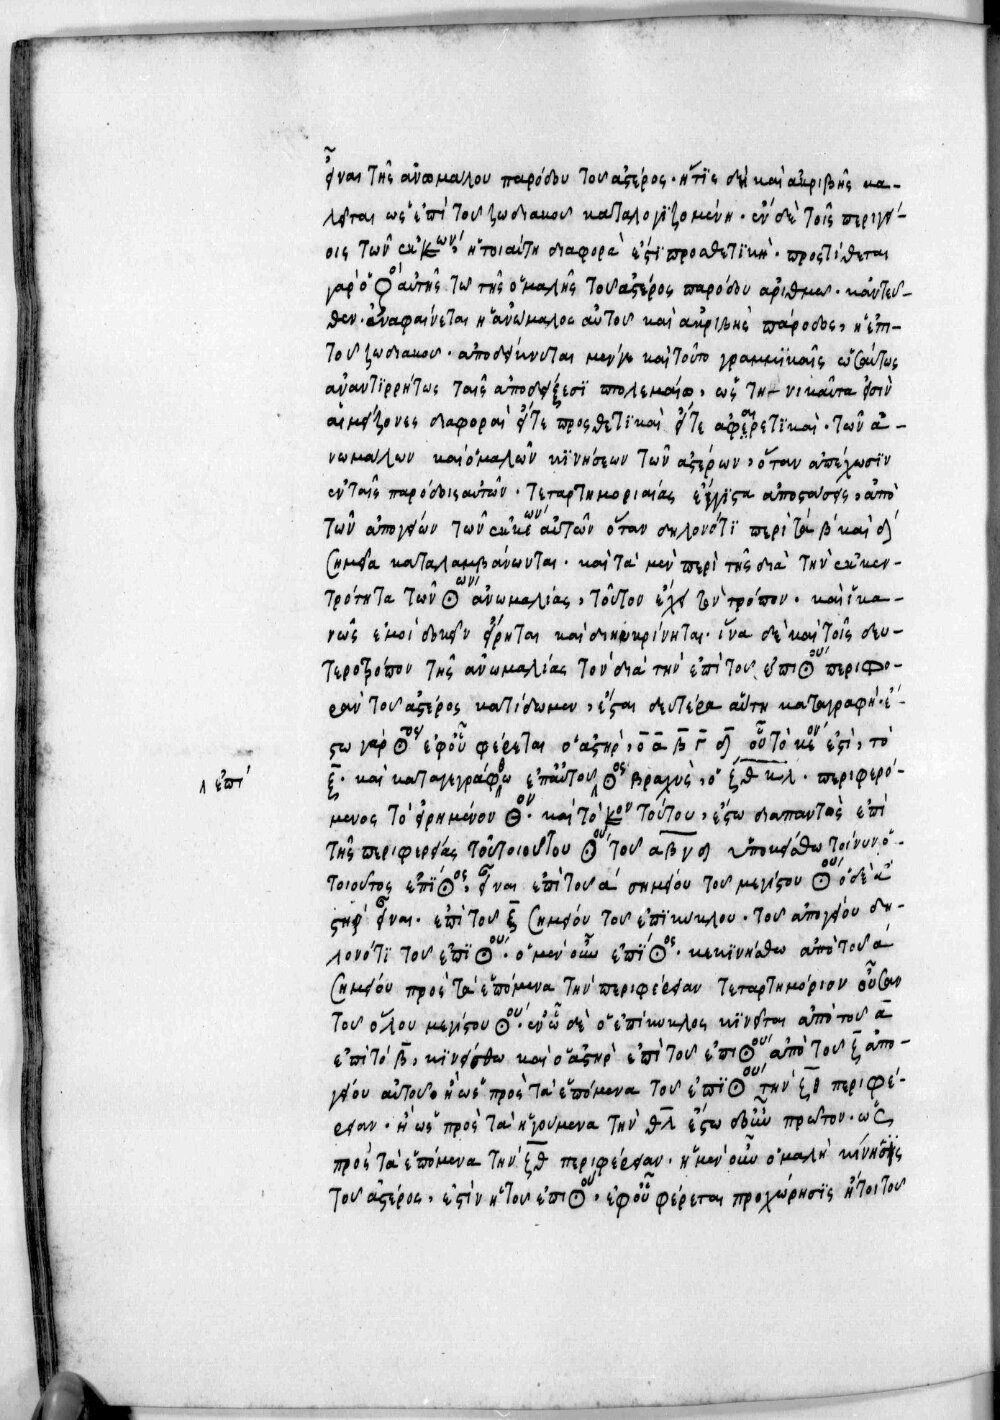 εἶναι τῆς ἀνωμάλου παρόδου τοῦ ἀστέρος· ἥτις δὴ καὶ ἀκριβὴς κα-
λεῖται ὡς ἐπὶ τοῦ ζωδιακοῦ καταλογιζομένη· ἐν δὲ τοῖς περιγεί-
οις τῶν ἐκκων´, ἡ τοιαύτη διαφορὰ ἐστὶ προσθετικὴ· προστίθεται
γὰρ ὁ αὐτῆς τῶ τῆς ὁμαλῆς τοῦ ἀστέρος παρόδου ἀριθμῶ· κἀντεῦ-
θεν ἀναφαίνεται ἡ ἀνώμαλος αὐτοῦ καὶ ἀκριβὴς πάροδος, ἡ ἐπὶ
τοῦ ζωδιακοῦ· ἀποδείκνυται μὲν καὶ τοῦτο γραμμικαῖς ὡσαύτως
ἀναντιρρήτως ταῖς ἀποδείξεσι πτολεμαίω, ὡς τηνικαῦτα εἰσὶν
αἱ μείζονες διαφοραὶ εἴτε προσθετικαὶ εἴτε ἀφαιρετικαὶ· τῶν ἀ-
νωμάλων καὶ ὁμαλῶν κινήσεων τῶν ἀστέρων, ὅταν ἀπέχωσιν
ἐν ταῖς παρόδοις αὐτῶν· τεταρτημοριαίας ἔγγιστα ἀποστάσεις, ἀπὸ
τῶν ἀπογείων τῶν ἐκκεων´ αὐτῶν ὅταν δηλονότι περὶ τὰ β´ καὶ δ´
σημεῖα καταλαμβάνωνται· καὶ τὰ μὲν περὶ τῆς διὰ τὴν ἐκκεν-
τρότητα τῶν ☉ων´ ἀνωμαλίας, τοῦτον ἔχει τὸν τρόπον· καὶ ἱκα-
νῶς ἐμοὶ δοκεῖν εἴρηται καὶ διηυκρίνηται· ἵνα δὲ καὶ τοῖς δευ-
τερότροπον τῆς ἀνωμαλίας τὸν διὰ τὴν ἐπὶ τοῦ ἐπι☉ου´ περιφο-
ρὰν τοῦ ἀστέρος κατίδωμεν, ἔσται δευτέρα αὕτη καταγραφή· ἔ-
στω γὰρ ☉ος ἐφ οὗ φέρεται ὁ ἀστὴρ, ὁ α β γ δ οὗ τὸ κεν´ ἐστὶ, τὸ
ξ· καὶ καταγεγράφθω ἐπ αὐτοῦ ☉ος βραχὺς, ὁ ξθκλ· περιφερό-
λ ἐπὶ
μενος τὸ εἰρημένον ☉ον· καὶ τὸ κον τούτου, ἔστω διαπαντὸς ἐπὶ
τῆς περιφερείας τοῦ τοιούτου ☉ου´ τοῦ αβγδ ὑποκείσθω τοίνυν ὁ
τοιοῦτος ἐπι☉ος, εἶναι ἐπὶ τοῦ α σημείου τοῦ μεγίστου ☉ου´ ὁ δὲ ἀ-
στὴρ εἶναι· ἐπὶ τοῦ ξ σημείου τοῦ ἐπικύκλου· τοῦ ἀπογείου δη-
λονότι τοῦ ἐπι☉ου´· ὁ μὲν οὖν ἐπι☉ος· κεκινήσθω ἀπὸ τοῦ α
σημείου πρὸς τὰ ἑπόμενα τὴν περιφέρειαν τεταρτημόριον οὖσαν
τοῦ ὅλου μεγίστου ☉ου´· ἐν ὧ δὲ ὁ ἐπίκυκλος κινεῖται ἀπὸ τοῦ α
ἐπὶ τὸ β, κινείσθω καὶ ὁ ἀστὴρ ἐπὶ τοῦ ἐπι☉ου´ ἀπὸ τοῦ ξ ἀπο-
γείου αὐτοῦ ἢ ὡς πρὸς τὰ ἑπόμενα τοῦ ἐπι☉ου´ τὴν ξθ περιφέ-
ρειαν· ἢ ὡς πρὸς τὰ ἡγούμενα τὴν θλ ἔστω οὖν πρῶτον· ὡς
πρὸς τὰ ἑπόμενα τὴν ξθ περιφέρειαν· ἡ μὲν οὖν ὁμαλὴ κίνησις
τοῦ ἀστέρος, ἐστὶν ἡ τοῦ ἐπι☉ου´, ἐφ οὗ φέρεται προχώρησις ἤτοι τοῦ